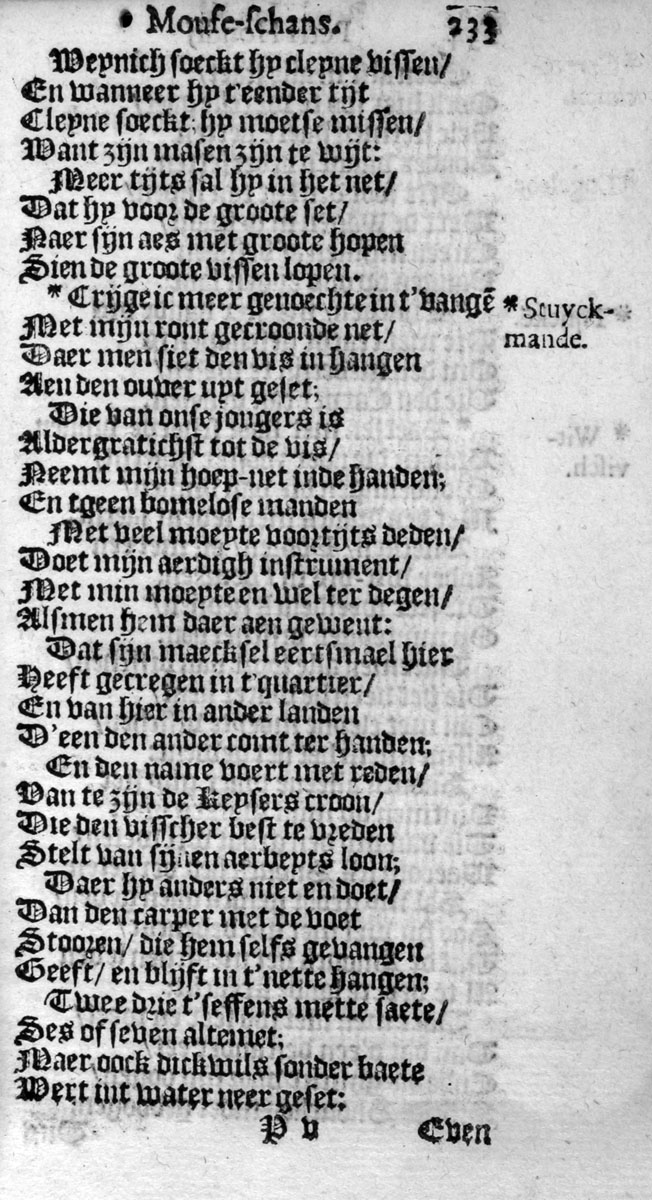 Moufe-schans. 233
Weynich soeckt hy cleyne vissen/
En wanneer hy t'eender tijt
Cleyne soeckt, hy moetse missen/
Want zijn masen zijn te wijt:
Meer tijts sal hy in het net/
Dat hy voor de groote set/
Naer sijn aes met groote hopen
Sien de groote vissen lopen.
* Crijge ic meer genoechte in t'vangē
* Stuyck-
mande.
Met mijn ront gecroonde net/
Daer men siet den vis in hangen
Aen den ouver uyt geset;
Die van onse jongers is
Aldergratichst tot de vis/
Neemt mijn hoep-net inde handen;
En tgeen bomelose manden
Met veel moeyte voortijts deden/
Doet mijn aerdigh instrument/
Met min moeyte en wel ter degen/
Alsmen hem daer aen gewent:
Dat sijn maecksel eertsmael hier
Heeft gecregen in t'quartier/
En van hier in ander landen
D'een den ander comt ter handen;
En den name voert met reden/
Van te zijn de Keysers croon/
Die den visscher best te vreden
Stelt van sijnen aerbeyts loon;
Daer hy anders niet en doet/
Dan den carper met de voet
Stooren/ die hem selfs gevangen
Geeft/ en blijft in t'nette hangen;
Twee drie t'seffens mette saete/
Ses of seven altemet;
Maer oock dickwils sonder baete
Wert int water neer geset:
P v Even